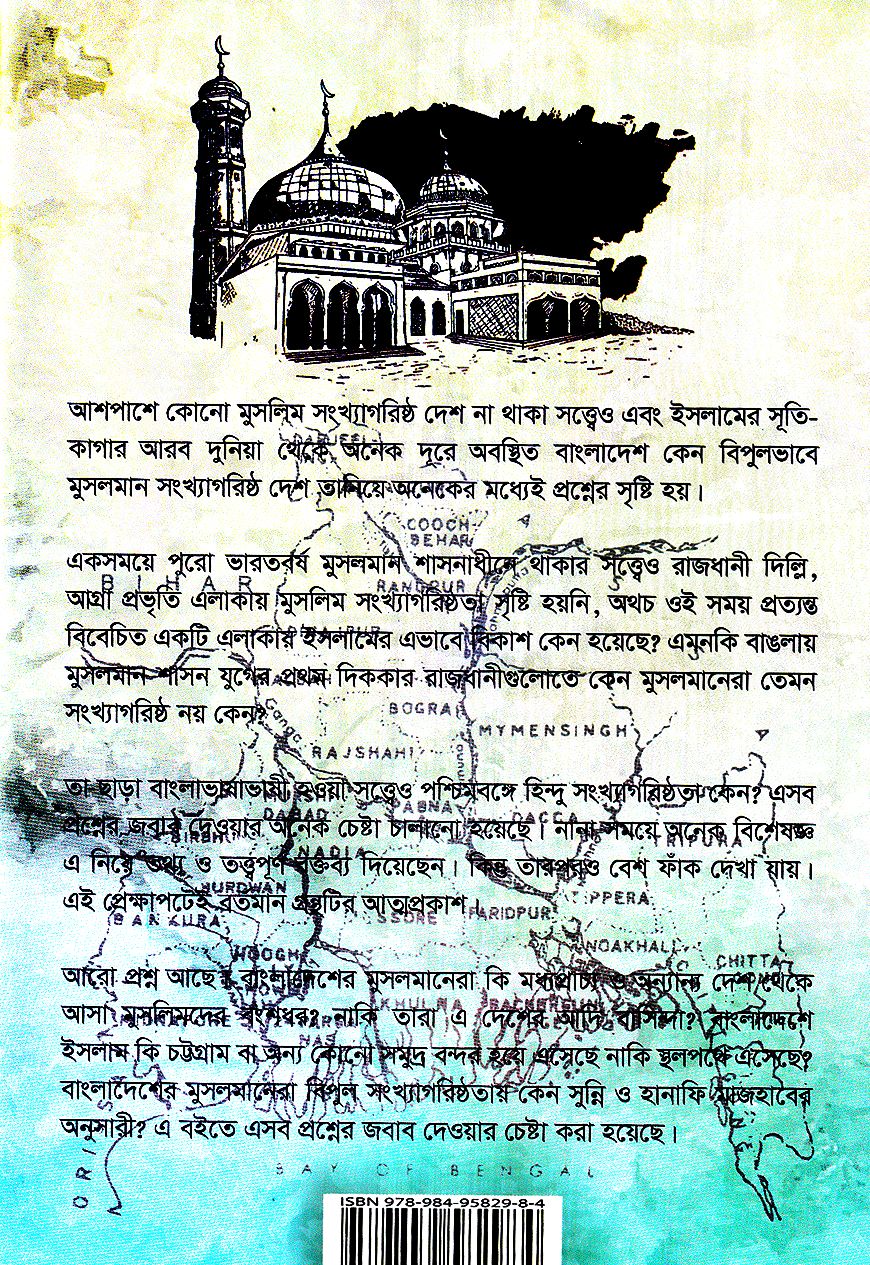 আশপাশে কোনো মুসলিম সংখ্যাগরিষ্ঠ দেশ না থাকা সত্ত্বেও এবং ইসলামের সূতি-
কাগার আরব দুনিয়া থেকে অনেক দূরে অবস্থিত বাংলাদেশ কেন বিপুলভাবে
মুসলমান সংখ্যাগরিষ্ঠ দেশ তা নিয়ে অনেকের মধ্যেই প্রশ্নের সৃষ্টি হয়।
COOCH
BEHAR
একসময়ে পুরো ভারতবর্ষ মুসলমান শাসনাধীনে থাকার সত্ত্বেও রাজধানী দিল্লি,
BIHAR
RANGPUR
আগ্রা প্রভৃতি এলাকায় মুসলিম সংখ্যাগরিষ্ঠতা সৃষ্টি হয়নি, অথচ ওই সময় প্রত্যন্ত
বিবেচিত একটি এলাকায় ইসলামের এভাবে বিকাশ কেন হয়েছে? এমনকি বাঙলায়
মুসলমান শাসন যুগের প্রথম দিককার রাজধানীগুলোতে কেন মুসলমানেরা তেমন
সংখ্যাগরিষ্ঠ নয় কেন?
BOGRA
Ganga
MYMENSINGH
RAJSHAHI
তা ছাড়া বাংলাভাষাভাষী হওয়া সত্ত্বেও পশ্চিমবঙ্গে হিন্দু সংখ্যাগরিষ্ঠতা কেন? এসব
PABNA
DACCA
প্রশ্নের জবাব দেওয়ার অনেক চেষ্টা চালানো হয়েছে। নানা সময়ে অনেক বিশেষজ্ঞ
TRIPURA
NADIA
এ নিয়ে তথ্য ও তত্ত্বপূর্ণ বক্তব্য দিয়েছেন। কিন্তু তারপরও বেশ ফাঁক দেখা যায়।
BURDWAN
PPERA
এই প্রেক্ষাপটেই বর্তমান গ্রন্থটির আত্মপ্রকাশ।
BANKURA
SSORE
FARIDPUR
NOAKHALI
HOOGH
CHITTA
আরো প্রশ্ন আছে। বাংলাদেশের মুসলমানেরা কি মধ্যপ্রাচ্য ও অন্যান্য দেশ থেকে
KHULNA
আসা মুসলিমদের বংশধর? নাকি তারা এ দেশের আদি বাসিন্দা? বাংলাদেশে
ইসলাম কি চট্টগ্রাম বা অন্য কোনো সমুদ্র বন্দর হয়ে এসেছে নাকি স্থলপথে এসেছে?
বাংলাদেশের মুসলমানেরা বিপুল সংখ্যাগরিষ্ঠতায় কেন সুন্নি ও হানাফি মাজহাবের
অনুসারী? এ বইতে এসব প্রশ্নের জবাব দেওয়ার চেষ্টা করা হয়েছে।
ORI
BAY OF BENGAL
ISBN 978-984-95829-8-4